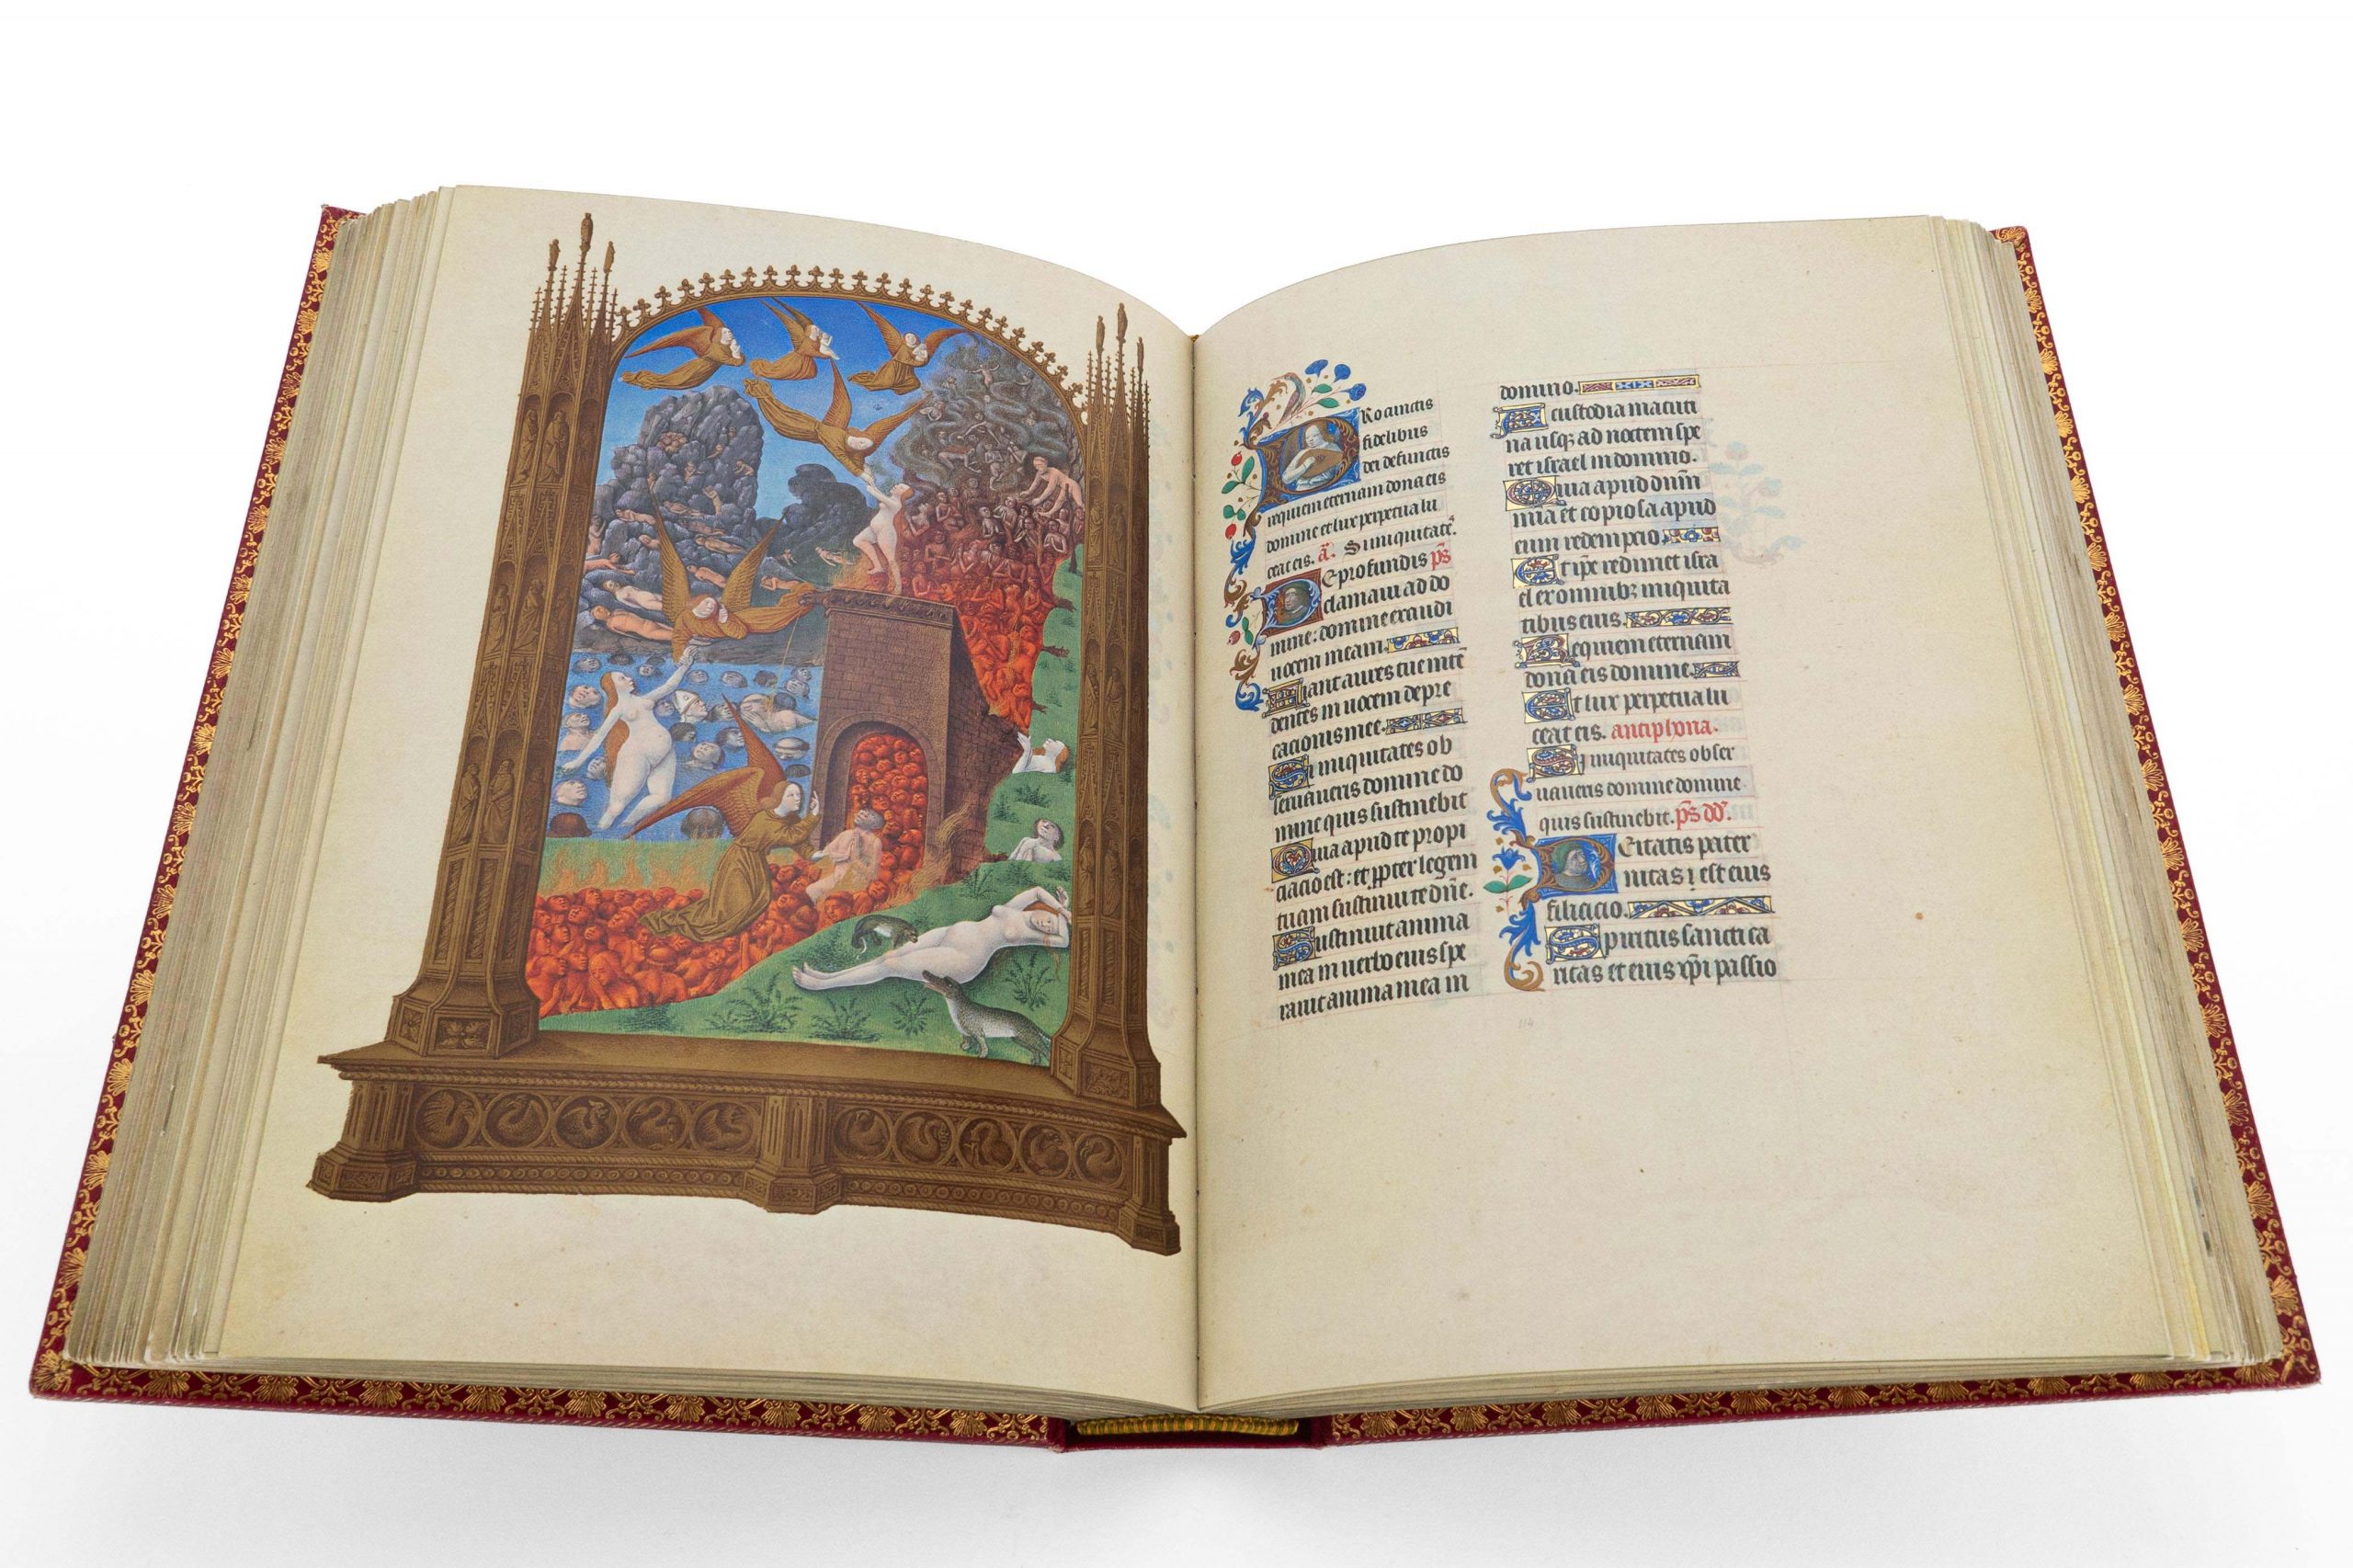 PRo cunctis
fidelibus
dei defunctis
requiem eternam dona eis
domine et lux perpetua lu
ceat eis. a͂. Si iniquitate͂.
DE profundis ps͂
clamaui ad do
mine: domine exaudi
uocem meam.
Fiant aures tue inte͂
dentes in uocem depre
cacionis mee.
Si iniquitates ob
seruaueris domine do
mine quis sustinebit
Quia apud te propi
ciacio est: et ꝓpter legem
tuam sustinui te dn͂e.
Sustinuit anima
mea in uerbo eius spe
rauit anima mea in
domino.
A custodia matuti
na usqꝫ ad noctem spe
ret israel in domino.
Quia apud dn͂m
mia et copiosa apud
eum redempcio.
Et ip͂e redimet isra
el ex omnibꝫ iniquita
tibus eius.
Requiem eternam
dona eis domine.
Et lux perpetua lu
ceat eis. antiphona.
Si iniquitates obser
uaueris domine domine
quis sustinebit. ps͂ dd͂.
PEitatis pater
nitas i est eius
filiacio.
Spiritus sancti ca
ritas et eius xp͂i passio
114